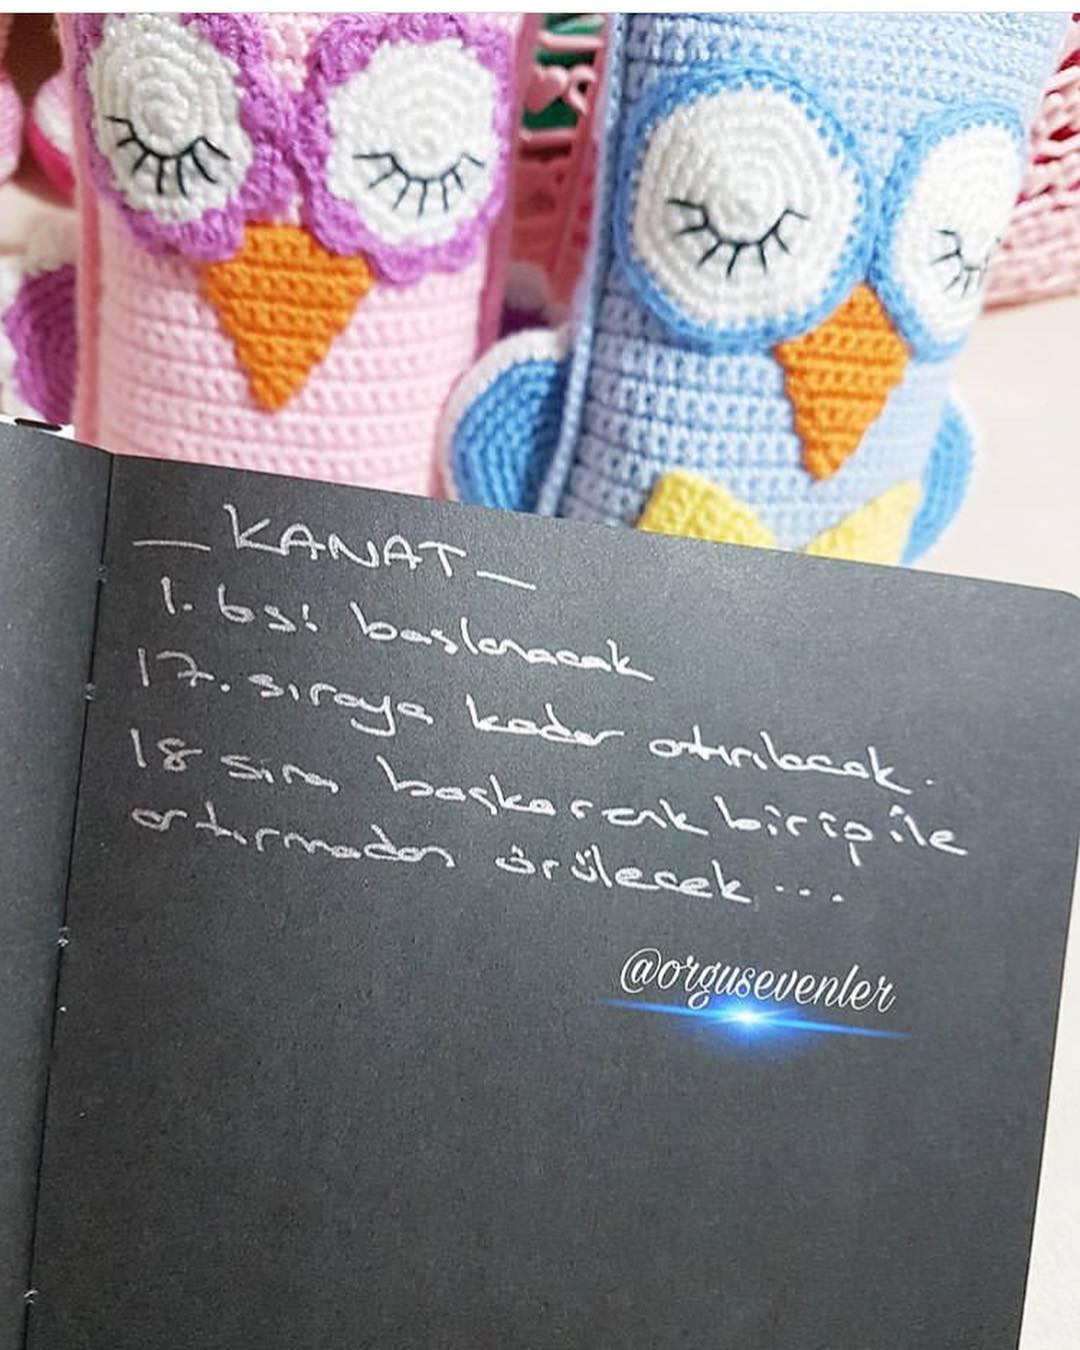 — KANAT —
1. 6sı başlanacak
17. sıraya kadar artırılacak.
18 sıra başka renk bir ip ile
artırmadan örülecek ...
@orgusevenler